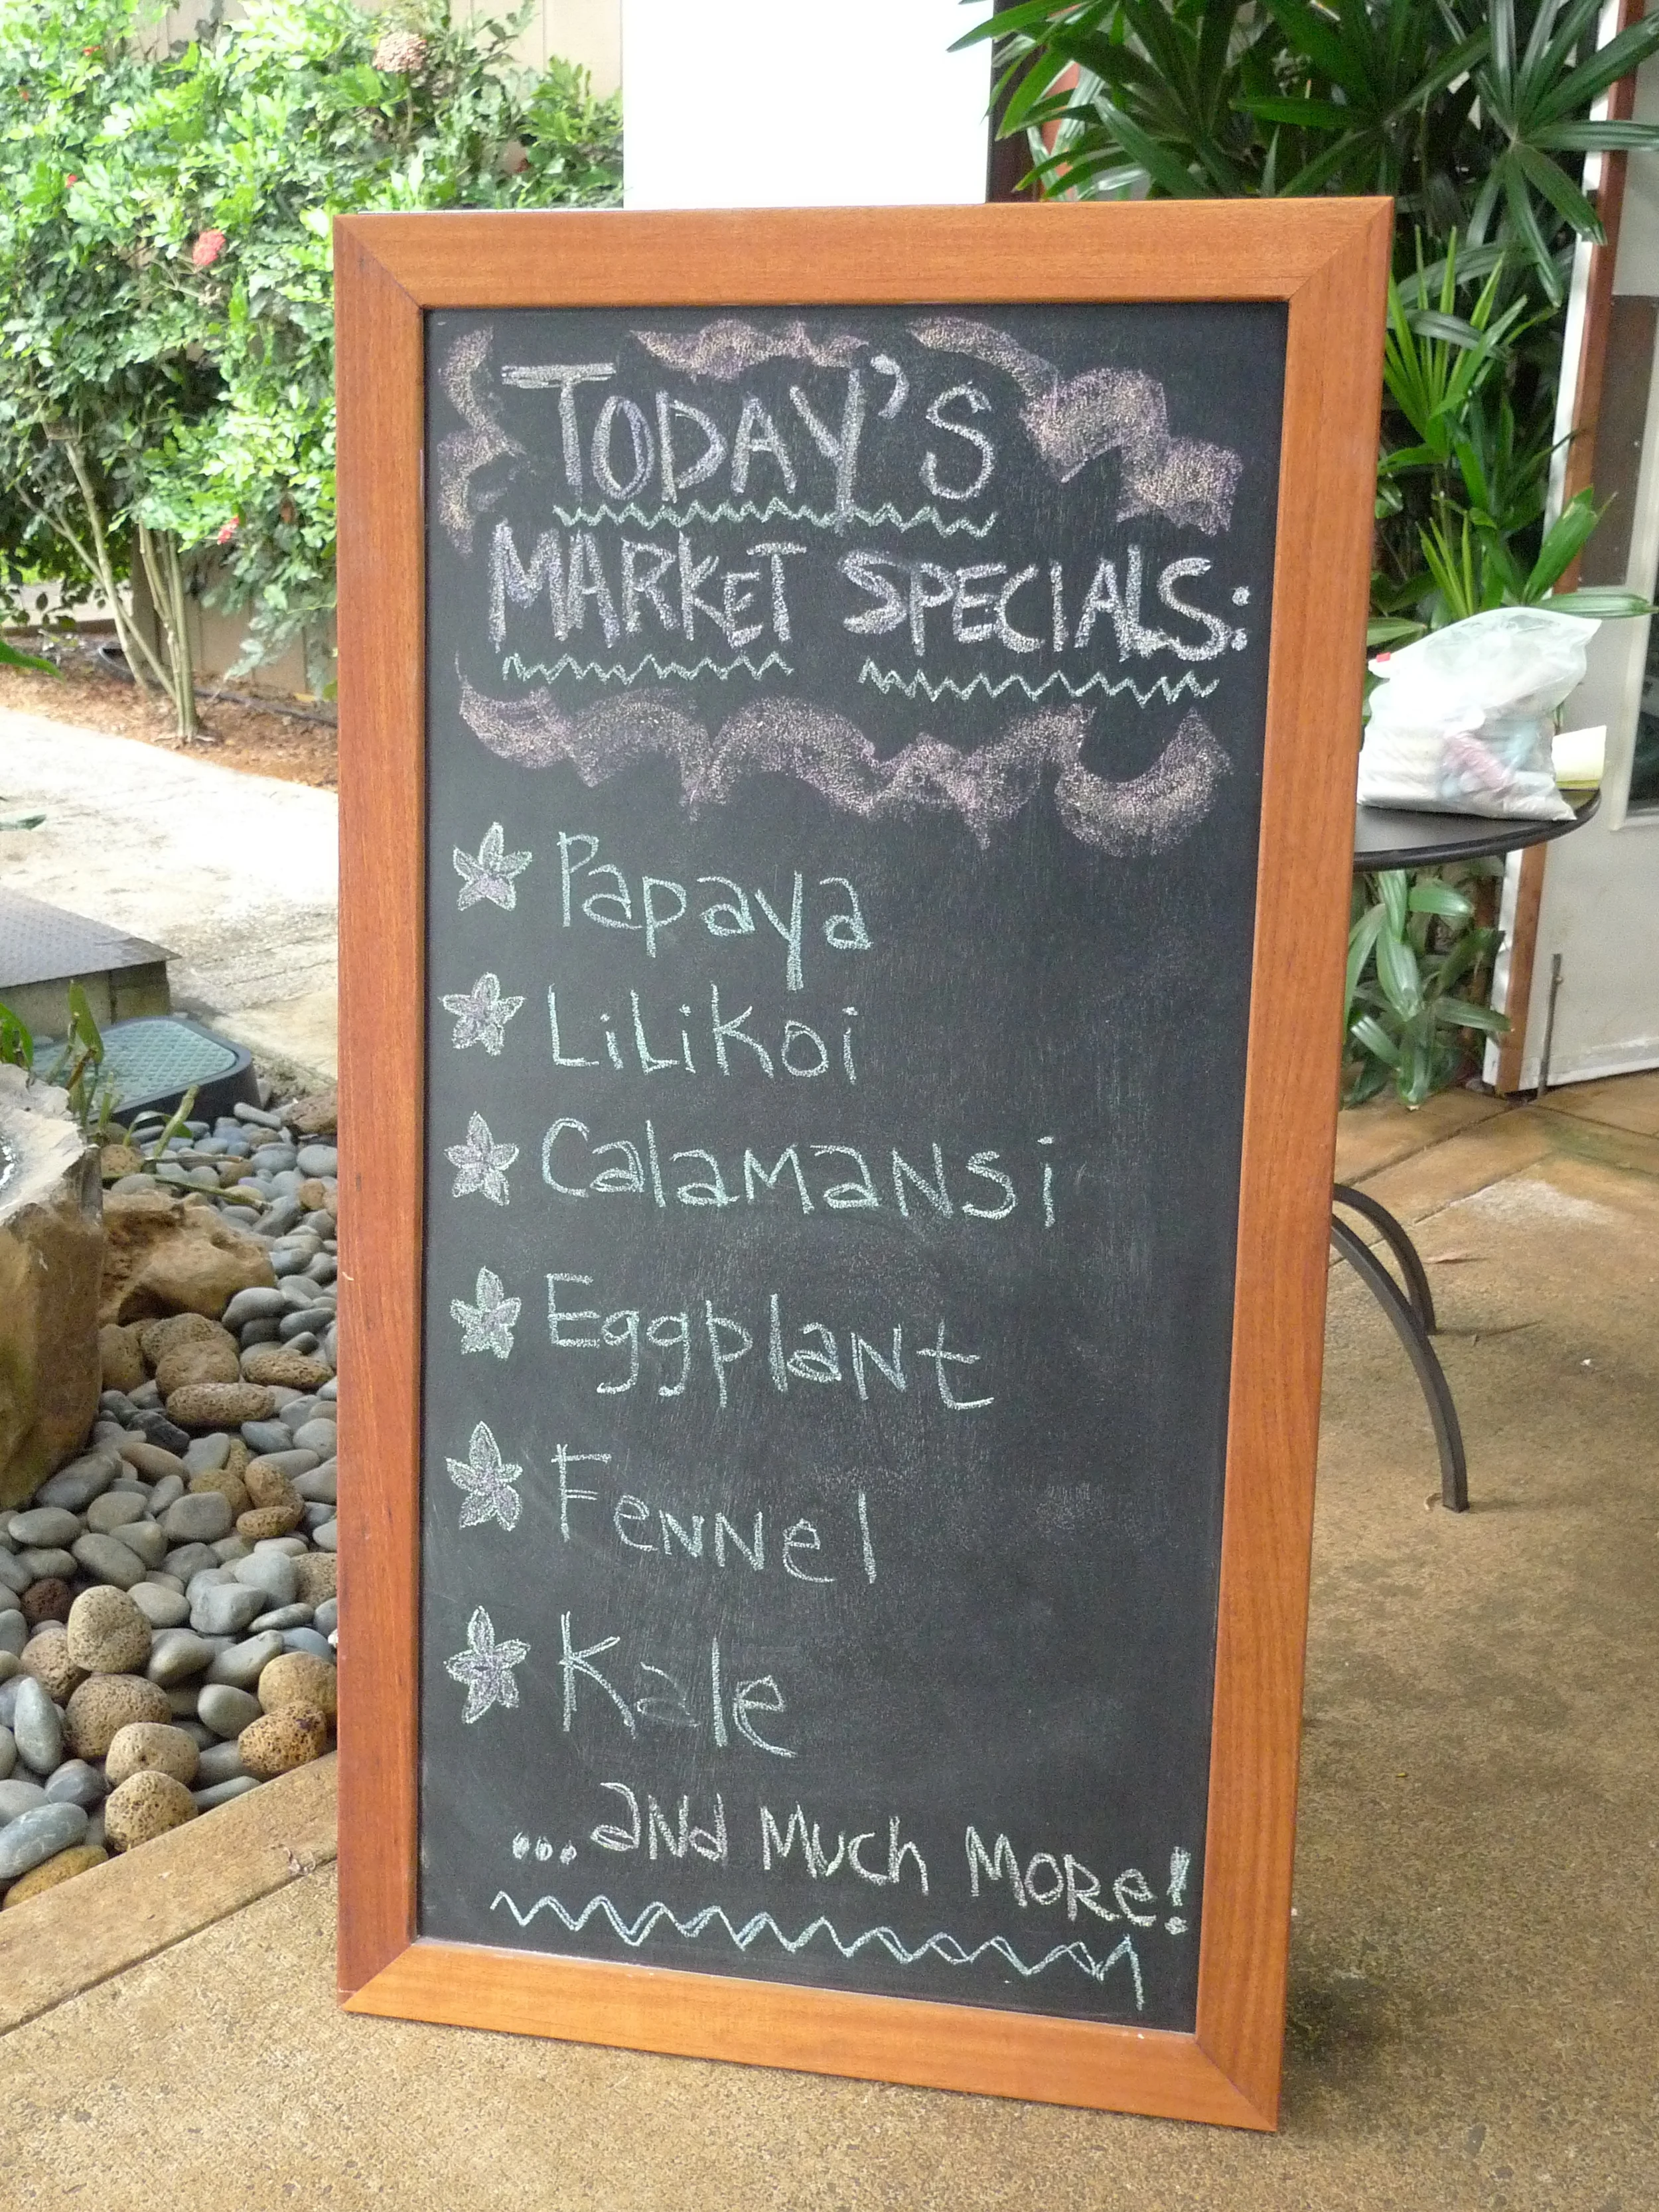 TODAY'S
MARKET SPECIALS:
Papaya
LiLiKoi
CalaMaNsi
EggplaNt
FeNNel
Kale
...aNd MucH MORe!